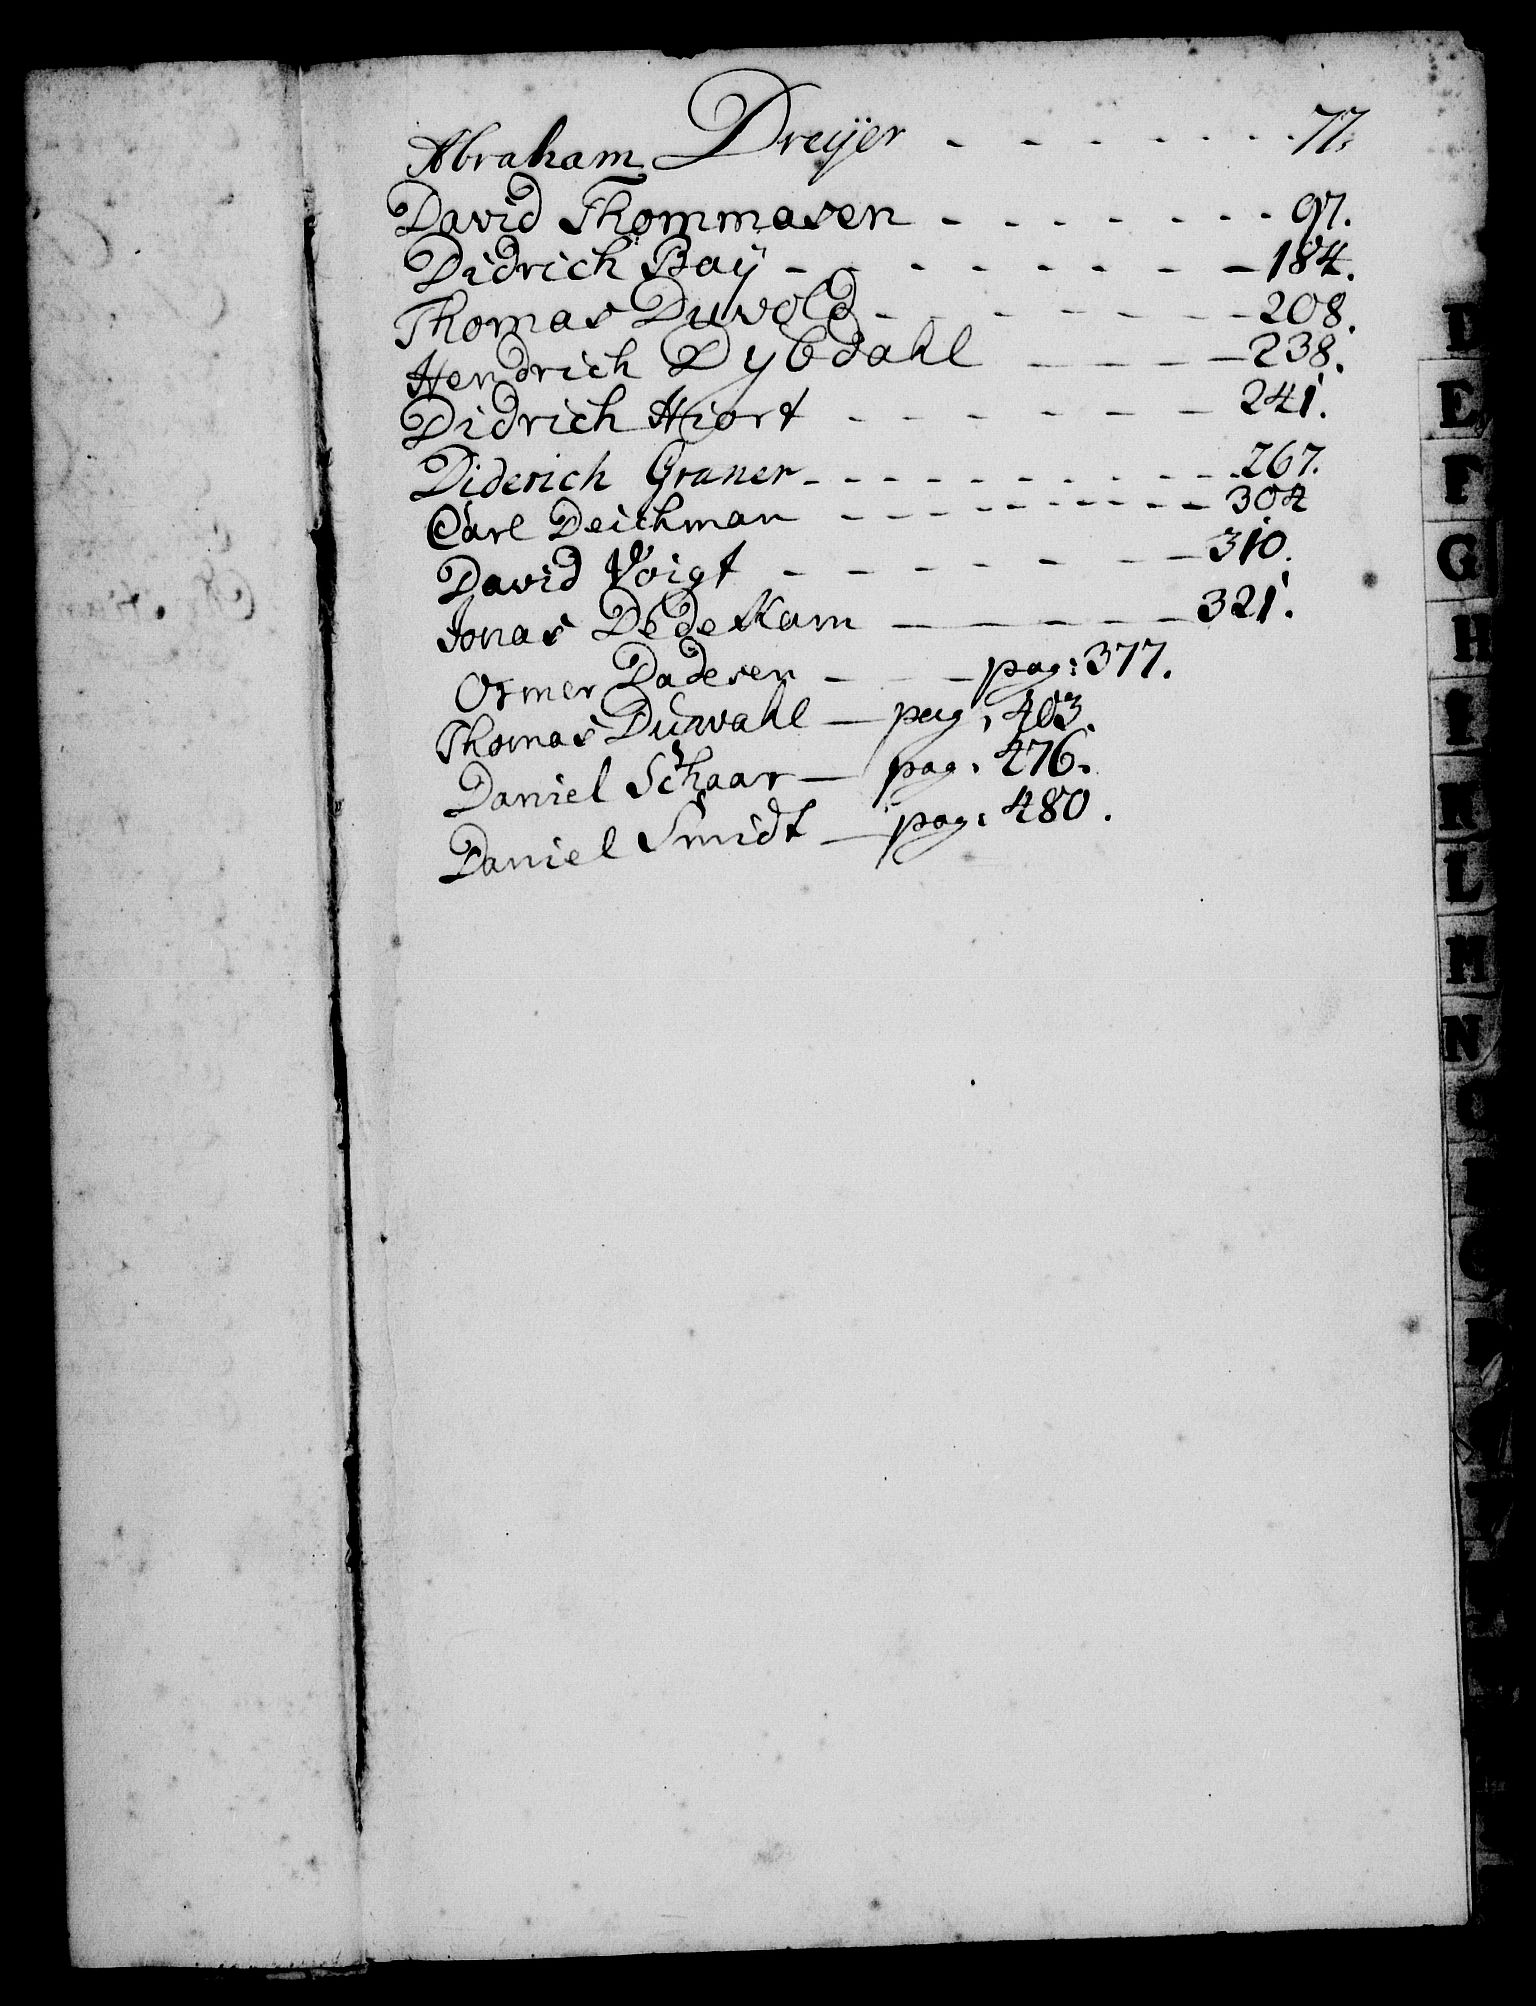 Abraham Dreyer - - - - - - - 77.
David Thommasen - - - - - - - 97.
Didrich Bay - - - - - - - - 184.
Thomas Duvold - - - - - - - 208.
Hendrich Dybdahl - - - - 238.
Didrich Hiort - - - - - - - 241.
Diderich Graner - - - - - - - - - - 267.
Carl Deichman - - - - - - - - - 304
David Voigt - - - - - - - 310.
Jonas Dedekam - - - - - - 321.
Osmer Dadesen - - - pag: 377.
Thomas Duwahl - pag: 403.
Daniel Schaar - pag: 476.
Daniel Smidt - pag: 480.
D
E
F
G
H
I
K
L
M
N
O